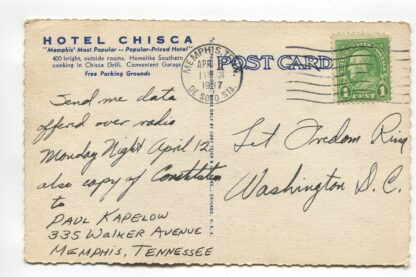 HOTEL CHISCA
"Memphis' Most Popular -- Popular-Priced Hotel"
400 bright, outside rooms. Homelike Southern
cooking in Chisca Grill. Convenient Garage
Free Parking Grounds
POST CARD
MEMPHIS, TENN.
APR
1937
DE SOTO STA.
1 CENT 1
Send me data
offerd over radio
Monday Night April 12
also copy of Constitution
to
PAUL KAPELOW
335 WALKER AVENUE
MEMPHIS, TENNESSEE
Let Fredom Ring
Washington D.C.